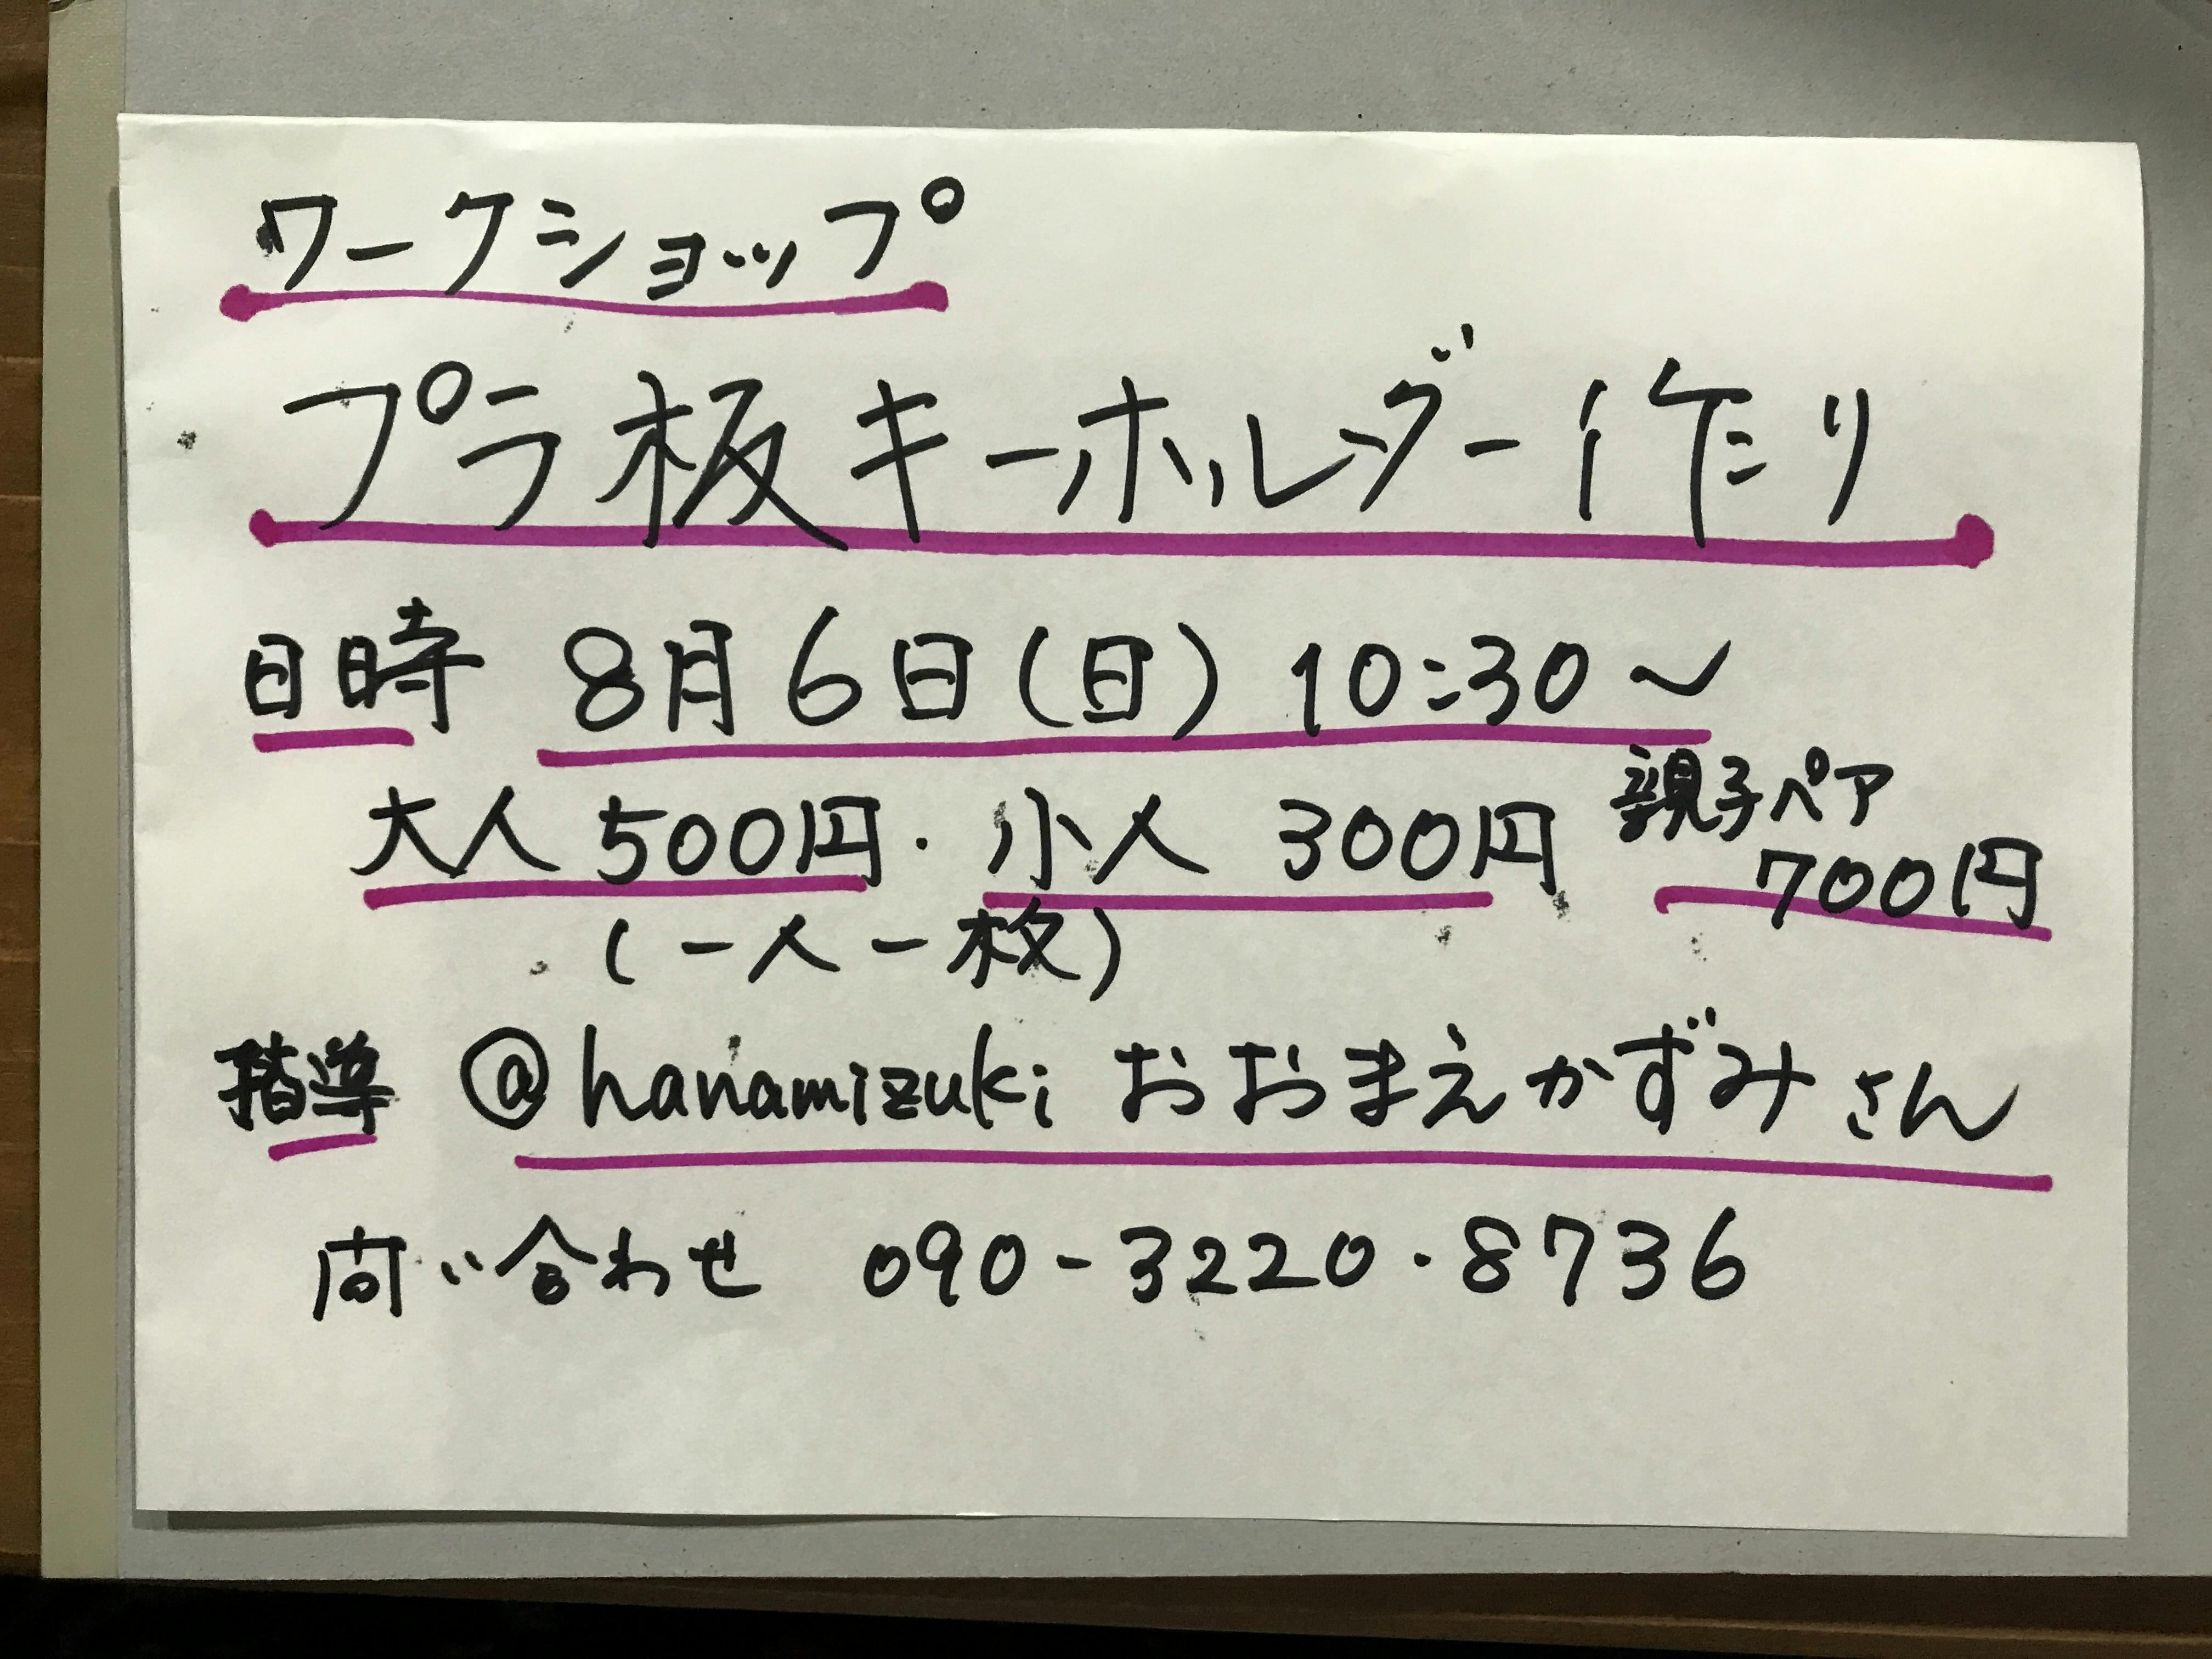 ワークショップ
プラ板キーホルダー作り
日時 8月6日(日) 10:30〜
大人 500円・小人 300円 親子ペア
700円
(一人一枚)
指導 @hanamizuki おおまえかずみさん
問い合わせ 090-3220・8736